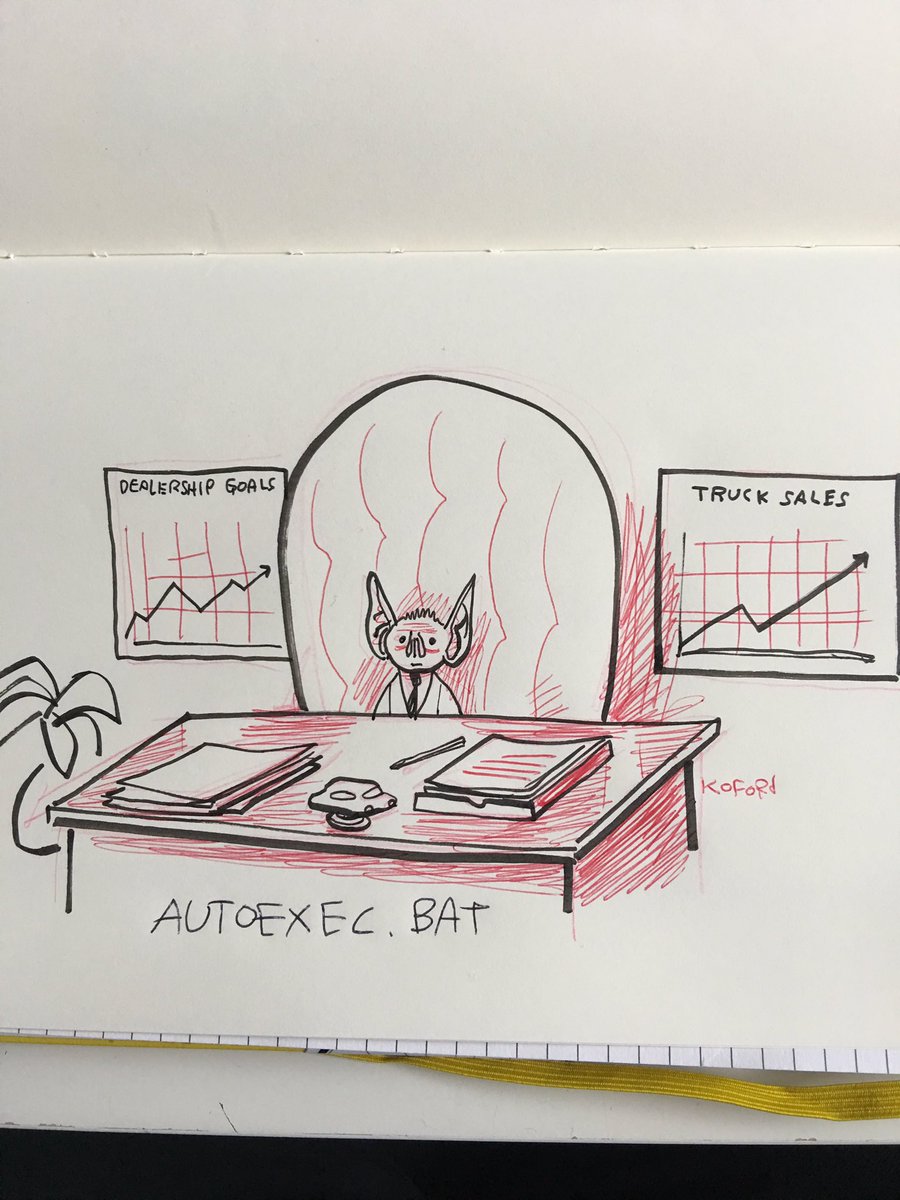 DEALERSHIP GOALS
TRUCK SALES
KOFORD
AUTOEXEC. BAT